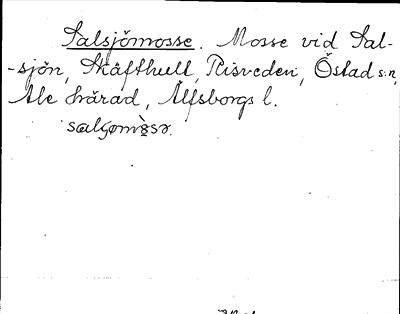 Salsjömosse. Mosse vid Sal-
-sjön, Skåfthult, Risveden, Östad s:n,
Ale härad, Älfsborgs l.